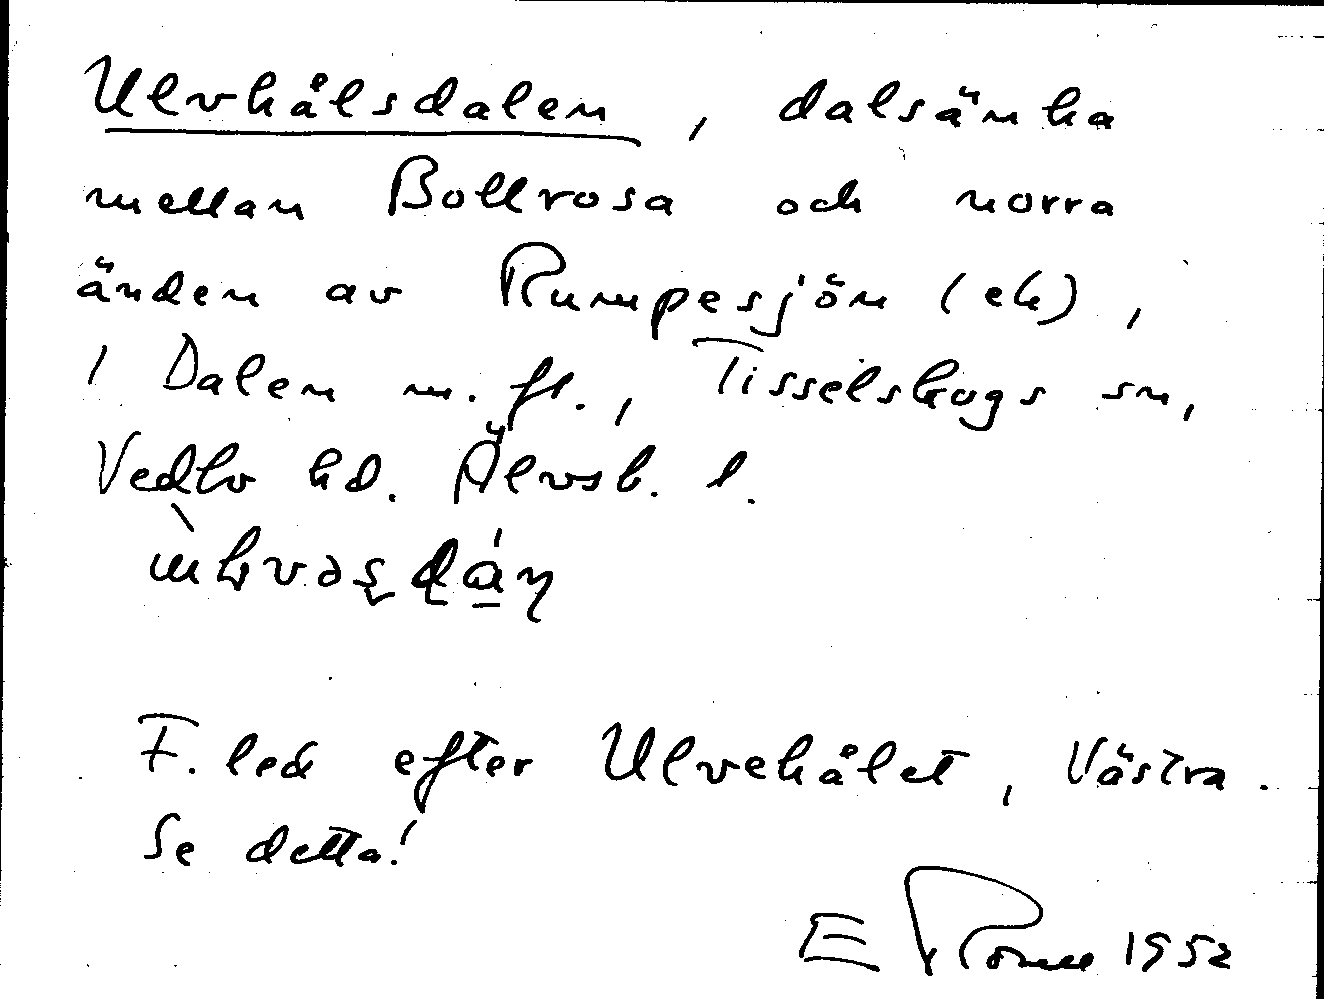 Ulvhålsdalen, dalsänka
mellan Bollrosa och norra
änden av Rumpesjön (ek),
1 Dalen m.fl., Tisselskogs sn,
Vedbo hd. Älvsb. l.
F. led efter Ulvehålet, Västra.
Se detta!
E 1952